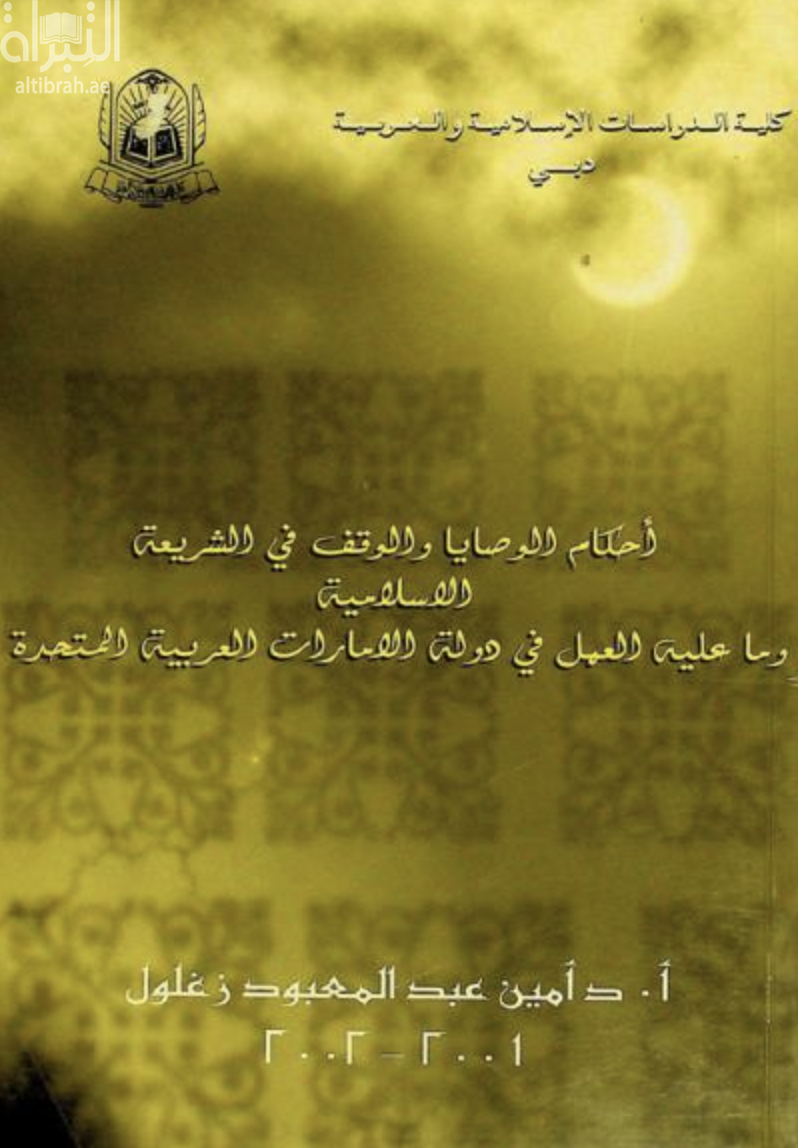 التبراة
altibrah.ae
كلية الدراسات الإسلامية والعربية
دبي
أحكام الوصايا والوقف في الشريعة
الاسلامية
وما عليه العمل في دولة الامارات العربية المتحدة
أ. د أمين عبد المعبود زغلول
٢٠٠١ - ٢٠٠٢